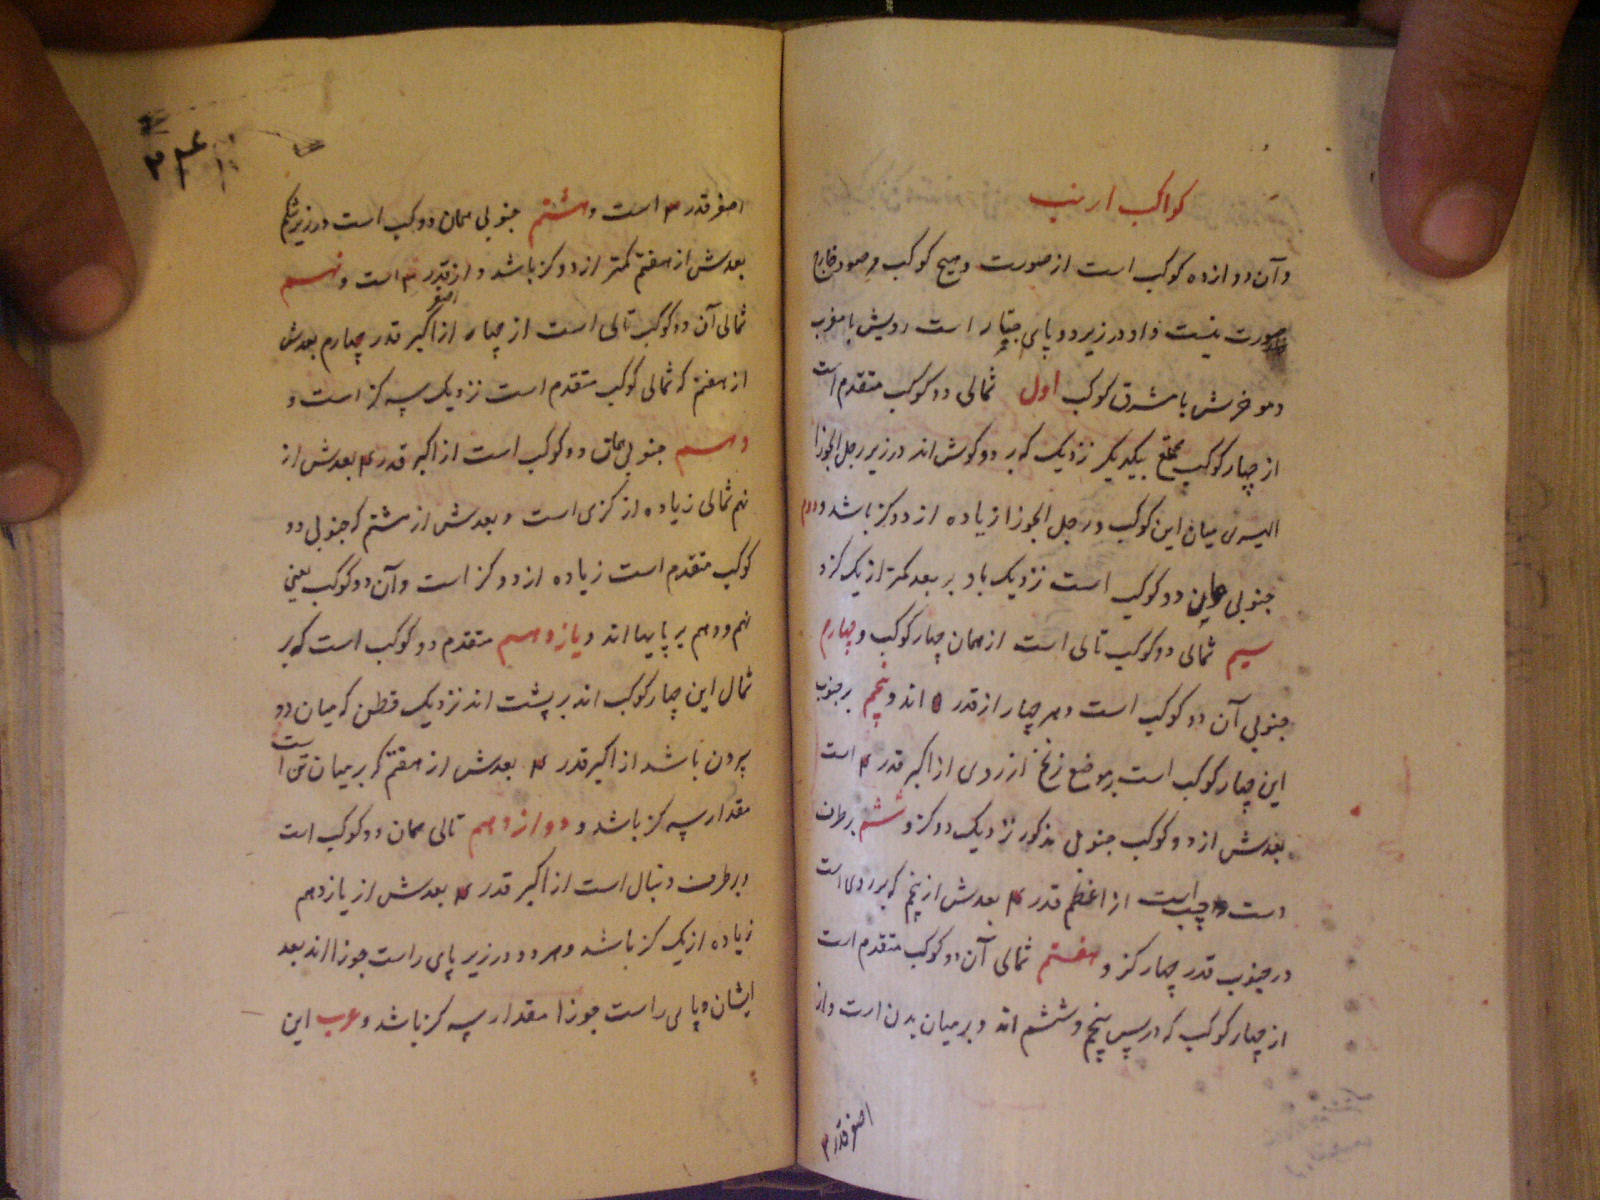 کواکب ارنب
و آن دوازده کوکب است از صورت و هیچ کوکب مرصود خارج
صورت نیست و او در زیر دو پای جبار است رویش بامغرب
و موخرش بامشرق کوکب اول شمالی دو کوکب متقدم است
از چهار کوکب مجتمع بیکدیگر نزدیک که بر دو گوش اند در زیر رجل الجوزا
الیسری میان این کوکب و رجل الجوزا زیاده از دو گز باشد و دوم
جنوبی همان دو کوکب است نزدیک باو بر بعد کمتر از یک گز و
سیم شمالی دو کوکب تالی است از همان چهار کوکب و چهارم
جنوبی آن دو کوکب است و هر چهار از قدر ۵ اند و پنجم بر جنوب
این چهار کوکب است بر موضع زنخ از روی از اکبر قدر ۴ است
بعدش از دو کوکب جنوبی مذکور نزدیک دو گز و ششم بر طرف
دست چپ است از اعظم قدر ۴ بعدش از پنجم که بر روی است
در جنوب قدر چهار گز و هفتم شمالی آن دو کوکب متقدم است
از چهار کوکب که در پس پنجم و ششم اند و بر میان بدن است و از
اصغر قدر ۳
اصغر قدر ۳ است و هشتم جنوبی همان دو کوکب است در زیر شکم
بعدش از هفتم کمتر از دو گز باشد و از قدر ۴ است و نهم
اصغر
شمالی آن دو کوکب تالی است از چهار از اکبر قدر چهارم بعدش
از هفتم که شمالی کوکب متقدم است نزدیک سه گز است و
دهم جنوبی همان دو کوکب است از اکبر قدر ۴ بعدش از
نهم شمالی زیاده از گزی است و بعدش از هشتم که جنوبی دو
کوکب متقدم است زیاده از دو گز است و آن دو کوکب یعنی
نهم و دهم بر پایها اند و یازدهم متقدم دو کوکب است که بر
شمال این چهار کوکب اند بر پشت اند نزدیک قطن که میان دو
برون باشد از اکبر قدر ۴ بعدش از هفتم که بر میان تن است
مقدار سه گز باشد و دوازدهم تالی همان دو کوکب است
و بر طرف دنبال است از اکبر قدر ۴ بعدش از یازدهم
زیاده از یک گز باشد و هر دو در زیر پای راست جوزا اند بعد
ایشان و پای راست جوزا مقدار سه گز باشد و عرب این